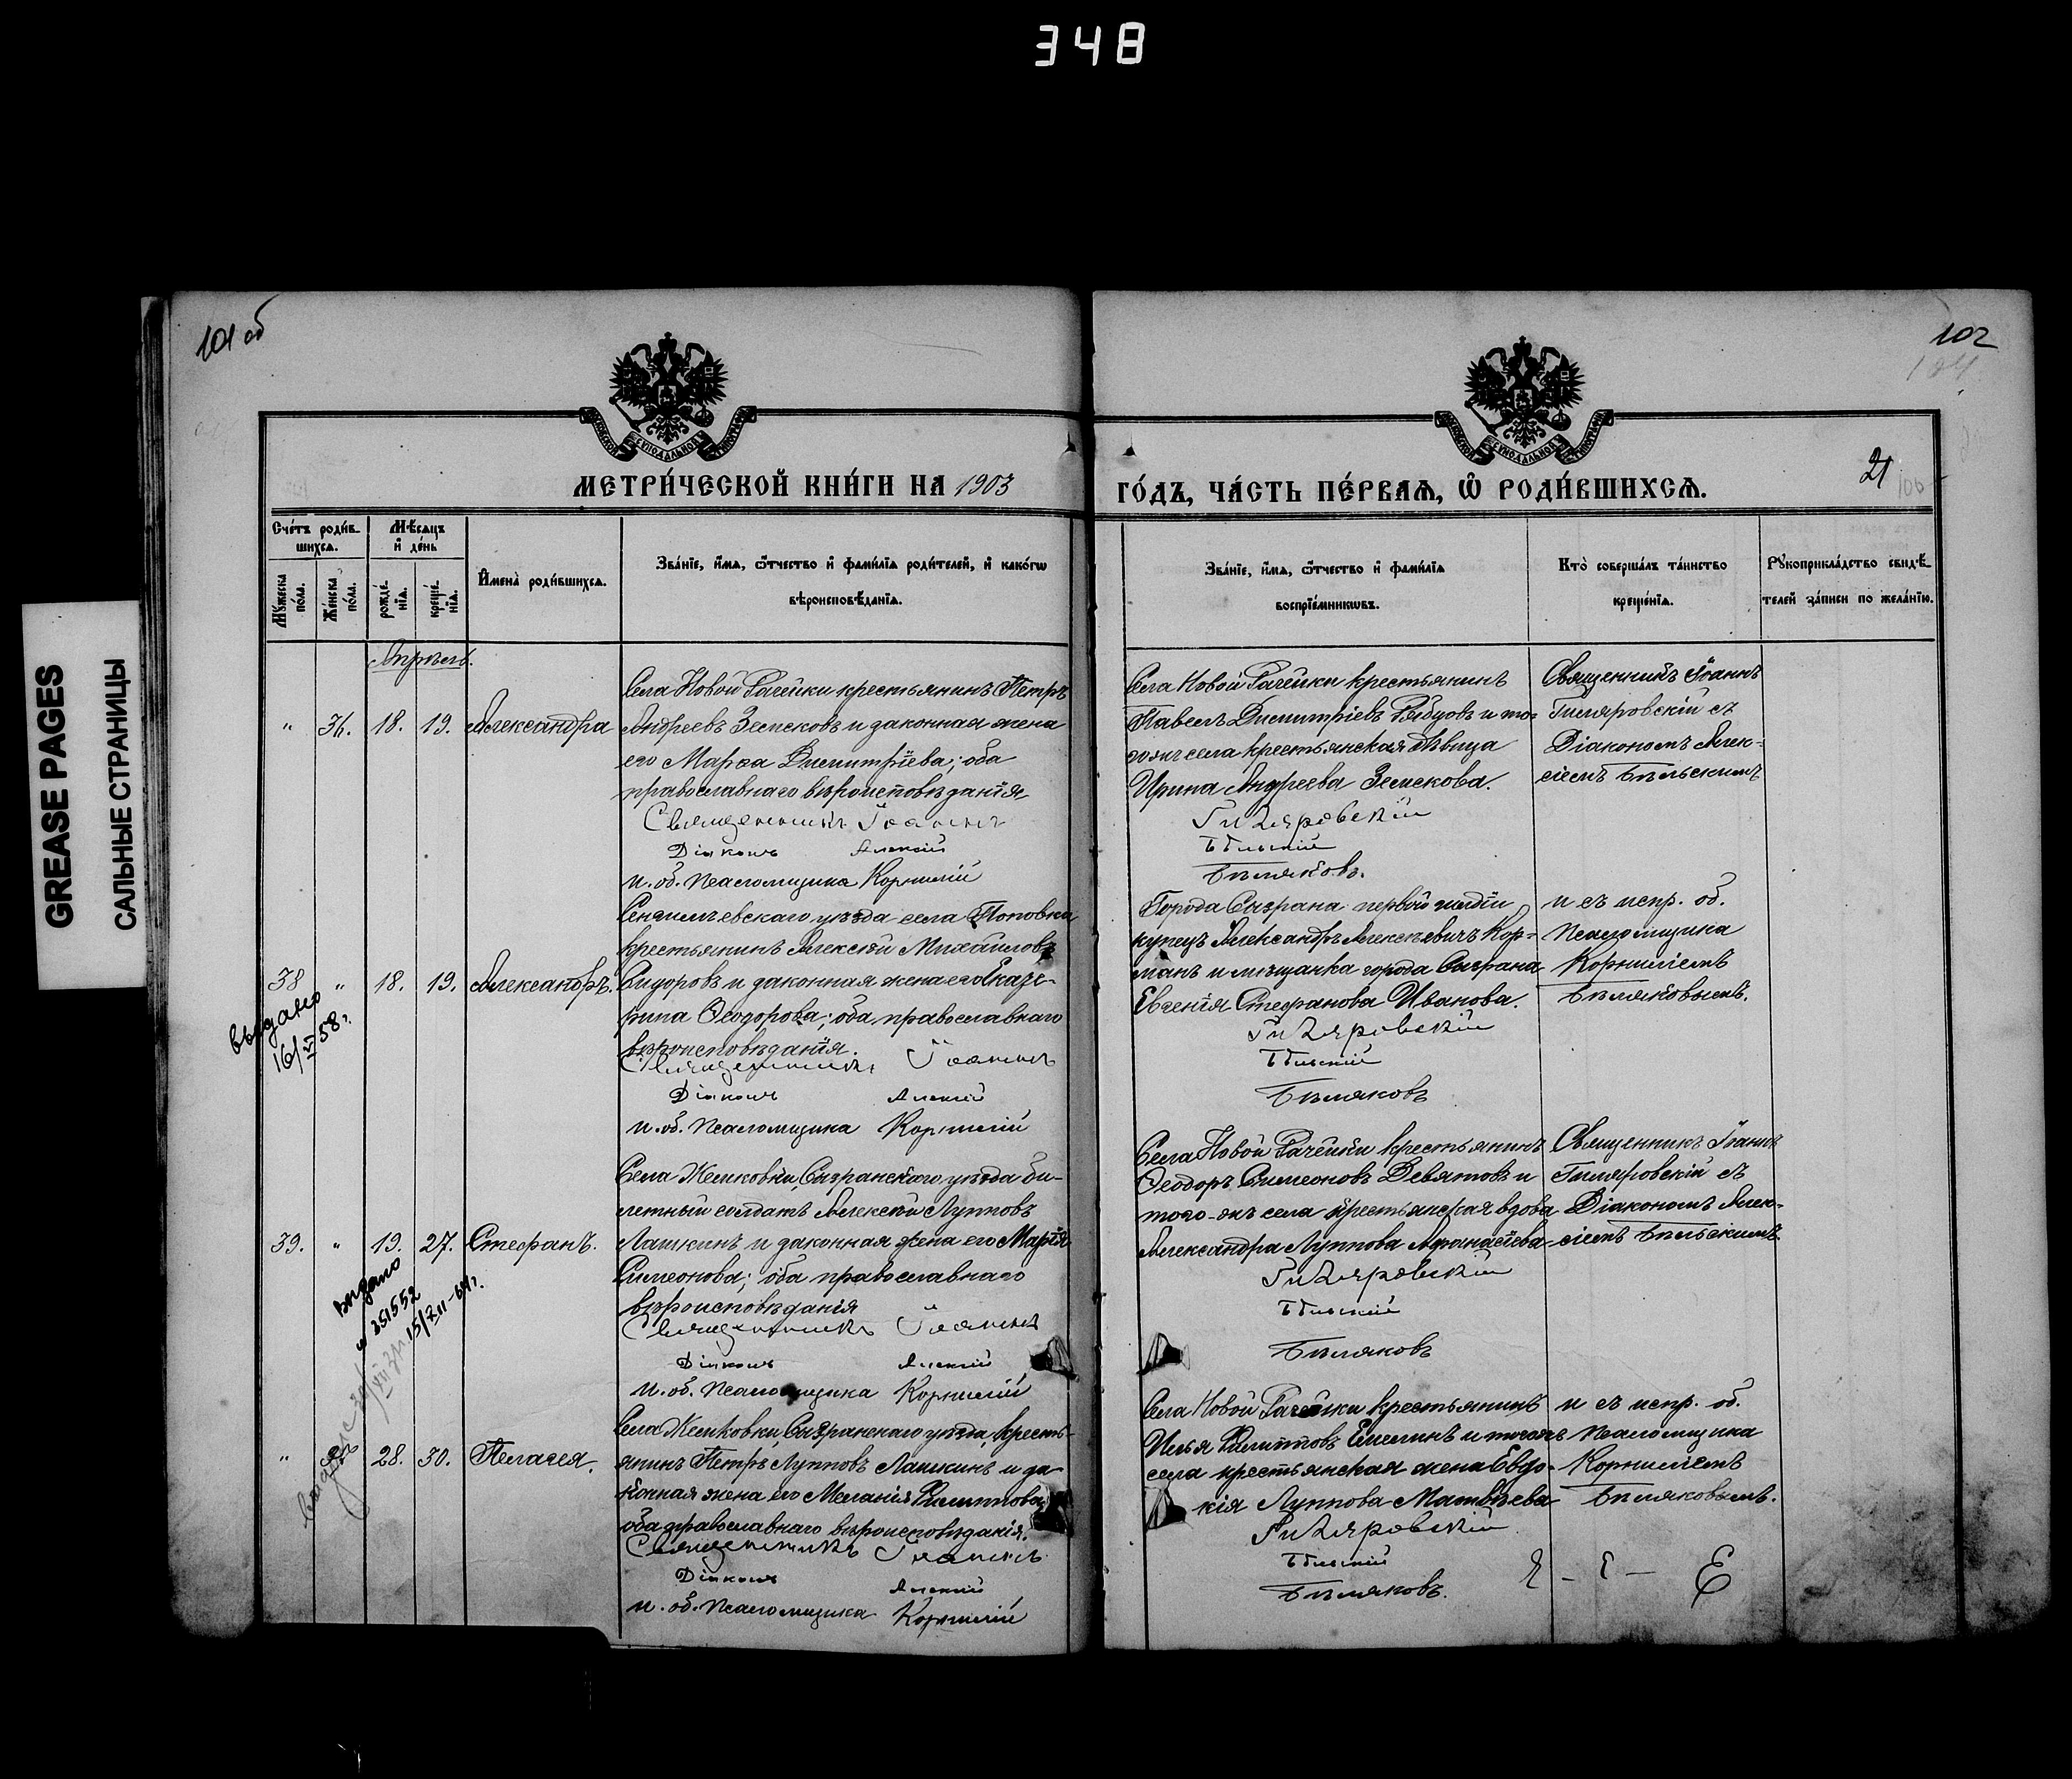 348
GREASE PAGES
САЛЬНЫЕ СТРАНИЦЫ
101 об
102
104
21
МЕТРИ́ЧЕСКОЙ КНИ́ГИ НА 1903
ГО́ДЪ, ЧА́СТЬ ПЕ́РВАѦ, Ѿ РОДИ́ВШИХСѦ.
Сче́тъ роди́в-
шихсѧ.
Мꙋ́жеска по́ла.
Же́нска по́ла.
Мѣ́сѧцъ
и҆ де́нь
рожде́нїѧ.
креще́нїѧ.
И҆мена̀ роди́вшихсѧ.
Зва́нїе, и҆́мѧ, ѻ҆́тчество и҆ фами́лїѧ роди́телей, и҆ како́гѡ
вѣроисповѣ́данїѧ.
Зва́нїе, и҆́мѧ, ѻ҆́тчество и҆ фами́лїѧ
воспрїе́мникѡвъ.
Кто̀ соверша́лъ та́инство
креще́нїѧ.
Рꙋкоприкла́дство свидѣ́-
телей за́писи по жела́нїю.
Апрѣль.
" 36. 18. 19. Александра
Села Новой Рачейки крестьянинъ Петръ
Андреевъ Земсковъ и законная жена
его Марѳа Димитріева; оба
православнаго вѣроисповѣданія
Священникъ Іоаннъ
Діаконъ Алексій
и. об. псаломщика Корнилій
Села Новой Рачейки крестьянинъ
Павелъ Димитріевъ Рябцовъ и то-
гоже села крестьянская дѣвица
Ирина Андреева Земскова.
Гиляровскій
Бѣльскій
Бѣляковъ.
Священникъ Іоаннъ
Гиляровскій съ
Діакономъ Алек-
сіемъ Бѣльскимъ
38 " 18. 19. Александръ.
выдано
16/VI 58 г.
Сенгилеевскаго уѣзда села Поповки
крестьянинъ Алексѣй Михайловъ
Сидоровъ и законная жена его Екате-
рина Ѳеодорова; оба православнаго
вѣроисповѣданія.
Священникъ Іоаннъ
Діаконъ Алексій
и. об. псаломщика Корнилій
Города Сызрана первой гильдіи
купецъ Александръ Алексѣевичъ Кор-
манъ и мѣщанка города Сызрана
Евгенія Стефанова Иванова.
Гиляровскій
Бѣльскій
Бѣляковъ
и съ испр. об.
псаломщика
Корниліемъ
Бѣляковымъ.
39. " 19. 27. Стефанъ.
выдано
351552
15/VII-64 г.
Села Жемковки, Сызранскаго уѣзда би-
летный солдатъ Алексѣй Лупповъ
Лашкинъ и законная жена его Марія
Симеонова; оба православнаго
вѣроисповѣданія
Священникъ Іоаннъ
Діаконъ Алексій
и. об. псаломщика Корнилій
Села Новой Рачейки крестьянинъ
Ѳеодоръ Симеоновъ Девятовъ и
того-же села крестьянская вдова
Александра Луппова Афанасіева
Гиляровскій
Бѣльскій
Бѣляковъ
Священникъ Іоаннъ
Гиляровскій съ
Діакономъ Алек-
сіемъ Бѣльскимъ
" 28. 30. Пелагея.
Села Жемковки, Сызранскаго уѣзда, кресть-
янинъ Петръ Лупповъ Лашкинъ и за-
конная жена его Меланія Филиппова,
оба православнаго вѣроисповѣданія.
Священникъ Іоаннъ
Діаконъ Алексій
и. об. псаломщика Корнилій
Села Новой Рачейки крестьянинъ
Илья Филипповъ Емелинъ и тогожъ
села крестьянская жена Евдо-
кія Луппова Матвѣева
Гиляровскій
Бѣльскій
Бѣляковъ.
и съ испр. об.
псаломщика
Корниліемъ
Бѣляковымъ.